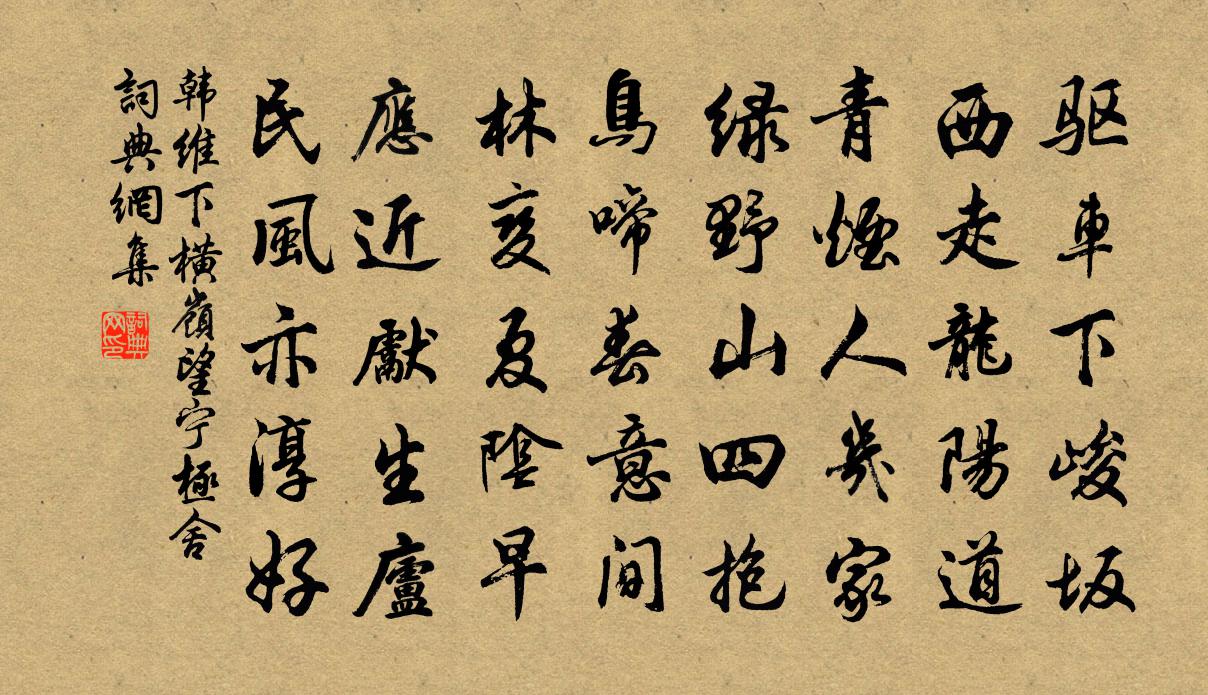 驱車下峻坂
西走龍陽道
青煙人幾家
绿野山四抱
鳥啼春意间
林变夏陰早
應近獻生廬
民風亦淳好
韩维下橫嶺望宁極舍
詞典網集
詞典网印